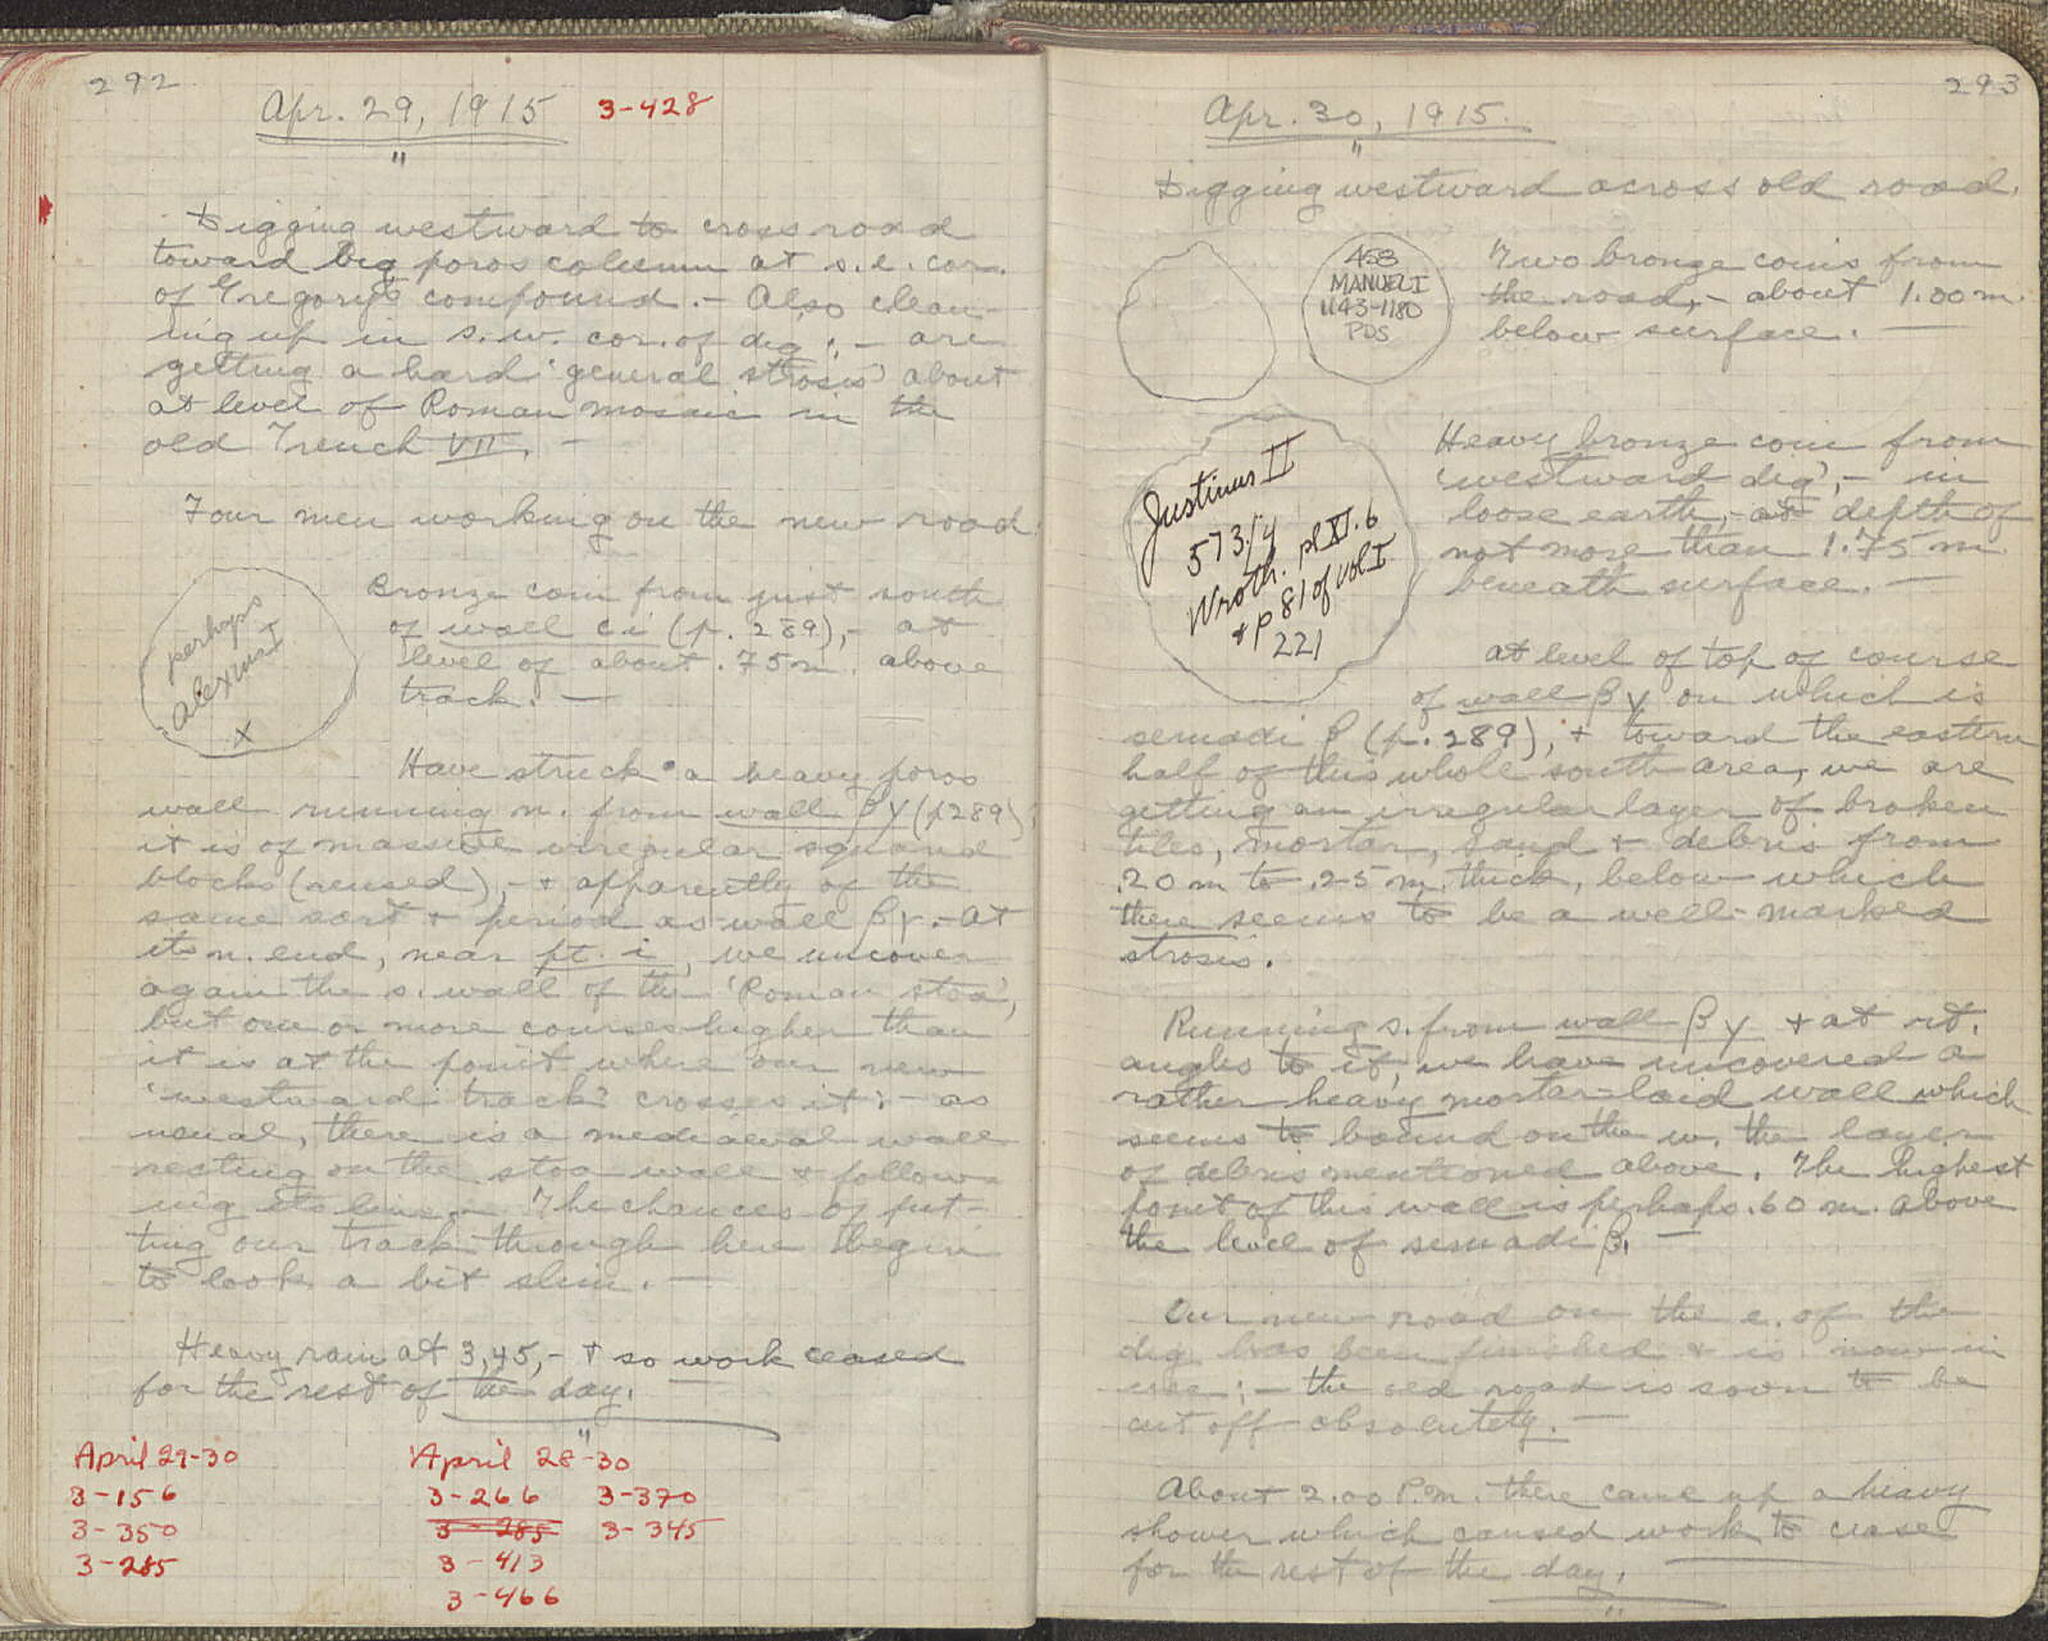 292
Apr. 29, 1915
3-428
"
Digging westward to cross road
toward big poros column at s.e. cor.
of Gregory's compound. - Also clean-
ing up in s.w. cor. of dig; - are
getting a hard 'general strosis' about
at level of Roman mosaic in the
old Trench VII. -
Four men working on the new road.
perhaps
Alexius I
x
Bronze coin from just south
of wall ci (p. 289), - at
level of about .75 m. above
track. -
Have struck a heavy poros
wall running n. from wall βγ (p289);
it is of massive irregular squared
blocks (reused), - + apparently of the
same sort + period as wall βγ. - At
its n. end, near pt. i, we uncover
again the s. wall of the 'Roman stoa',
but one or more courses higher than
it is at the point where our new
'westward track' crosses it; - as
usual, there is a mediaeval wall
resting on the stoa wall + follow-
ing its line. - The chances of put-
ting our track through here begin
to look a bit slim. -
Heavy rain at 3,45, - + so work ceased
for the rest of the day.
"
April 29-30
3-156
3-350
3-285
April 28-30
3-266 3-370
3-285 3-345
3-413
3-466
293
Apr. 30, 1915.
"
Digging westward across old road.
458
MANUEL I
1143-1180
PDS
Two bronze coins from
the road, - about 1.00 m.
below surface. -
Justinus II
573/4
Wroth. pl XI. 6
+ p 81 of vol I
221
Heavy bronze coin from
'westward dig', - in
loose earth, - at depth of
not more than 1.75 m.
beneath surface. -
At level of top of course
of wall βγ on which is
semadi β (p. 289), + toward the eastern
half of this whole south area, we are
getting an irregular layer of broken
tiles, mortar, sand + debris from
.20 m to .25 m. thick, below which
there seems to be a well-marked
strosis.
Running s. from wall βγ + at rt.
angles to it, we have uncovered a
rather heavy mortar-laid wall which
seems to bound on the w. the layer
of debris mentioned above. The highest
point of this wall is perhaps .60 m. above
the level of semadi β. -
Our new road on the e. of the
dig has been finished + is now in
use; - the old road is soon to be
cut off absolutely. -
About 2.00 P.M. there came up a heavy
shower which caused work to cease
for the rest of the day.
"